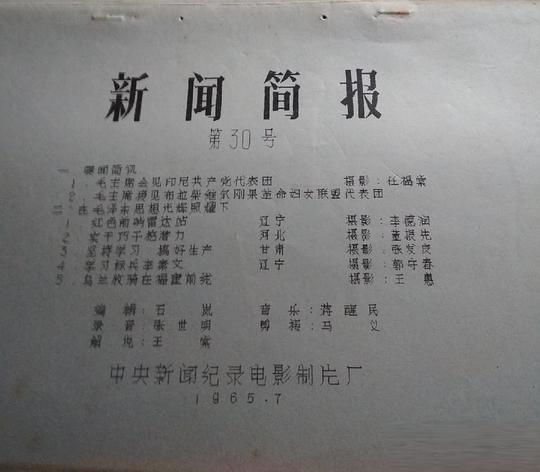 新闻简报
第30号
一 要闻简讯
1. 毛主席会见印尼共产党代表团 摄影:任福棠
2. 毛主席接见布拉柴维尔刚果革命妇女联盟代表团
二 在毛泽东思想光辉照耀下
1 红色前哨雷达站 辽宁 摄影:李德润
2 实干巧干挖潜力 河北 摄影:董振先
3 坚持学习 搞好生产 甘肃 摄影:张发良
4 学习标兵李素文 辽宁 摄影:郭守春
5. 乌兰牧骑在福建前线 摄影:王
编辑:石岚 音乐:蒋醒民
录音:张世明 剪接:马义
解说:王
中央新闻纪录电影制片厂
1965.7